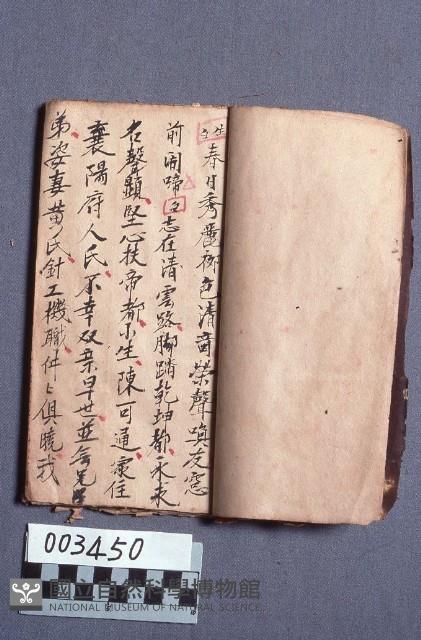 生上 春日秀麗柳色清 音 榮聲喚友窓
前闹啼 生志在清雲路脚踏乾坤都永表
名聲顕堅心扶帝都小生陳可通家住
襄陽府人氏不幸双亲早世並無兄
弟娶妻黄氏針工機職件々俱曉我
003450
國立自然科學博物館
NATIONAL MUSEUM OF NATURAL SCIENCE